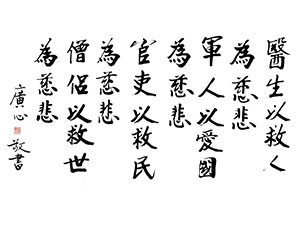 醫生以救人
為慈悲
軍人以愛國
為慈悲
官吏以救民
為慈悲
僧侶以救世
為慈悲
廣心
敬書